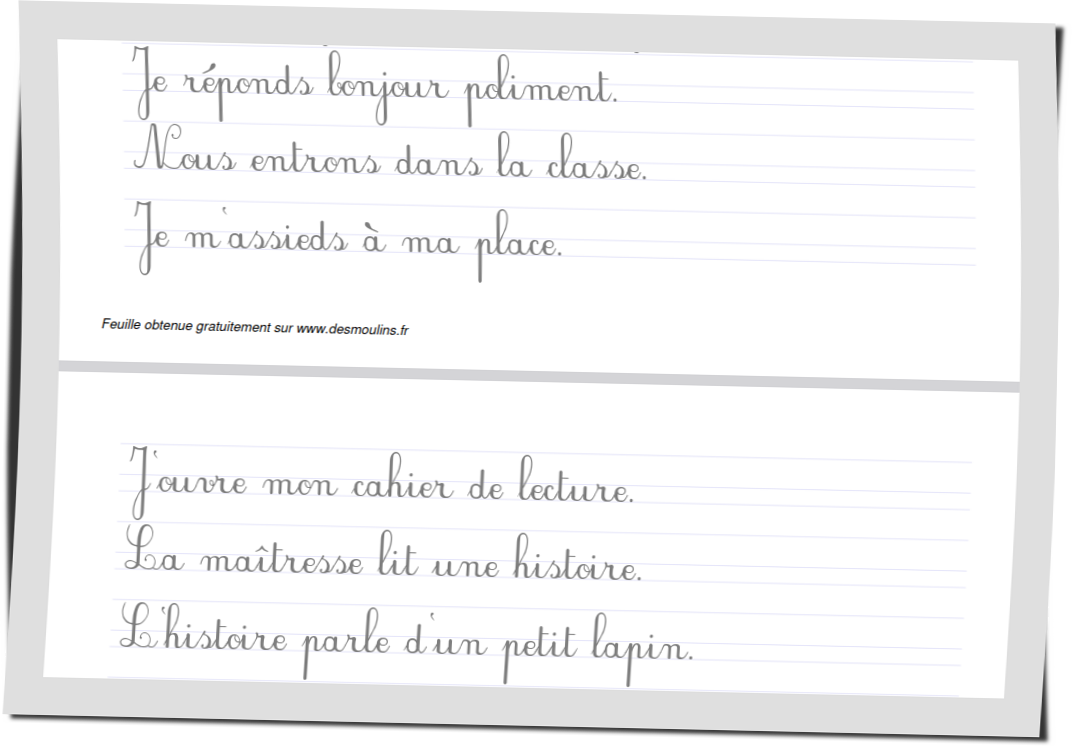 Je réponds bonjour poliment.
Nous entrons dans la classe.
Je m'assieds à ma place.
Feuille obtenue gratuitement sur www.desmoulins.fr
J'ouvre mon cahier de lecture.
La maîtresse lit une histoire.
L'histoire parle d'un petit lapin.